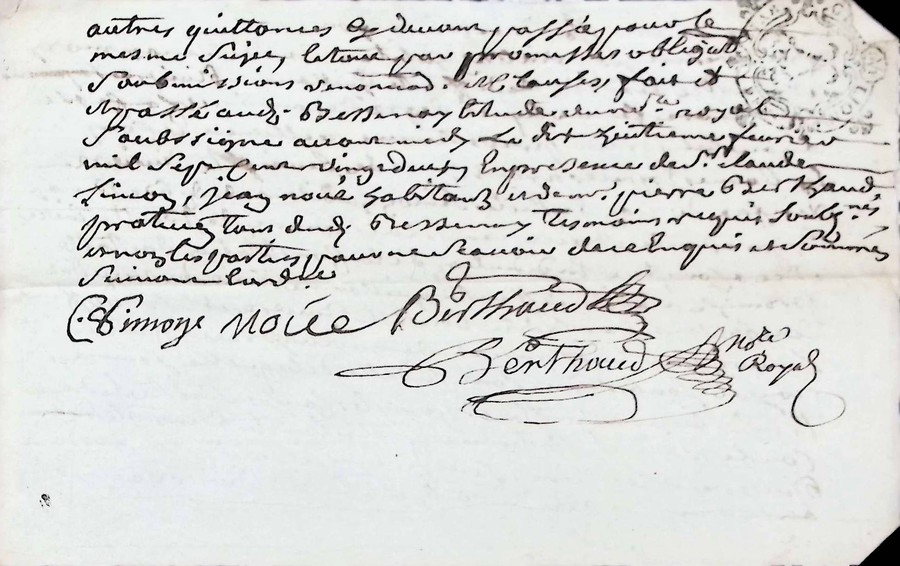 autres quittances cy devant passés pour le
mesme sujet le tout par promesses obligat
soubmissions renonciad. & clauses, fait et
passé aud. Bessenay étude du no.re royal
soubsigné avant midy le dix huitieme fevrier
mil sept cent vingt deux, En presence de Sr. claude
Simon, jean noié habitants et de mr. pierre Berthaud
praticien tous dud. Bessenay tesmoins requis soubsignés
et non les parties pour ne scavoir de ce Enquis et sommés
suivant l'ord.ce
C. Simone noiée Berthaud
Berthaud No.re
Royal